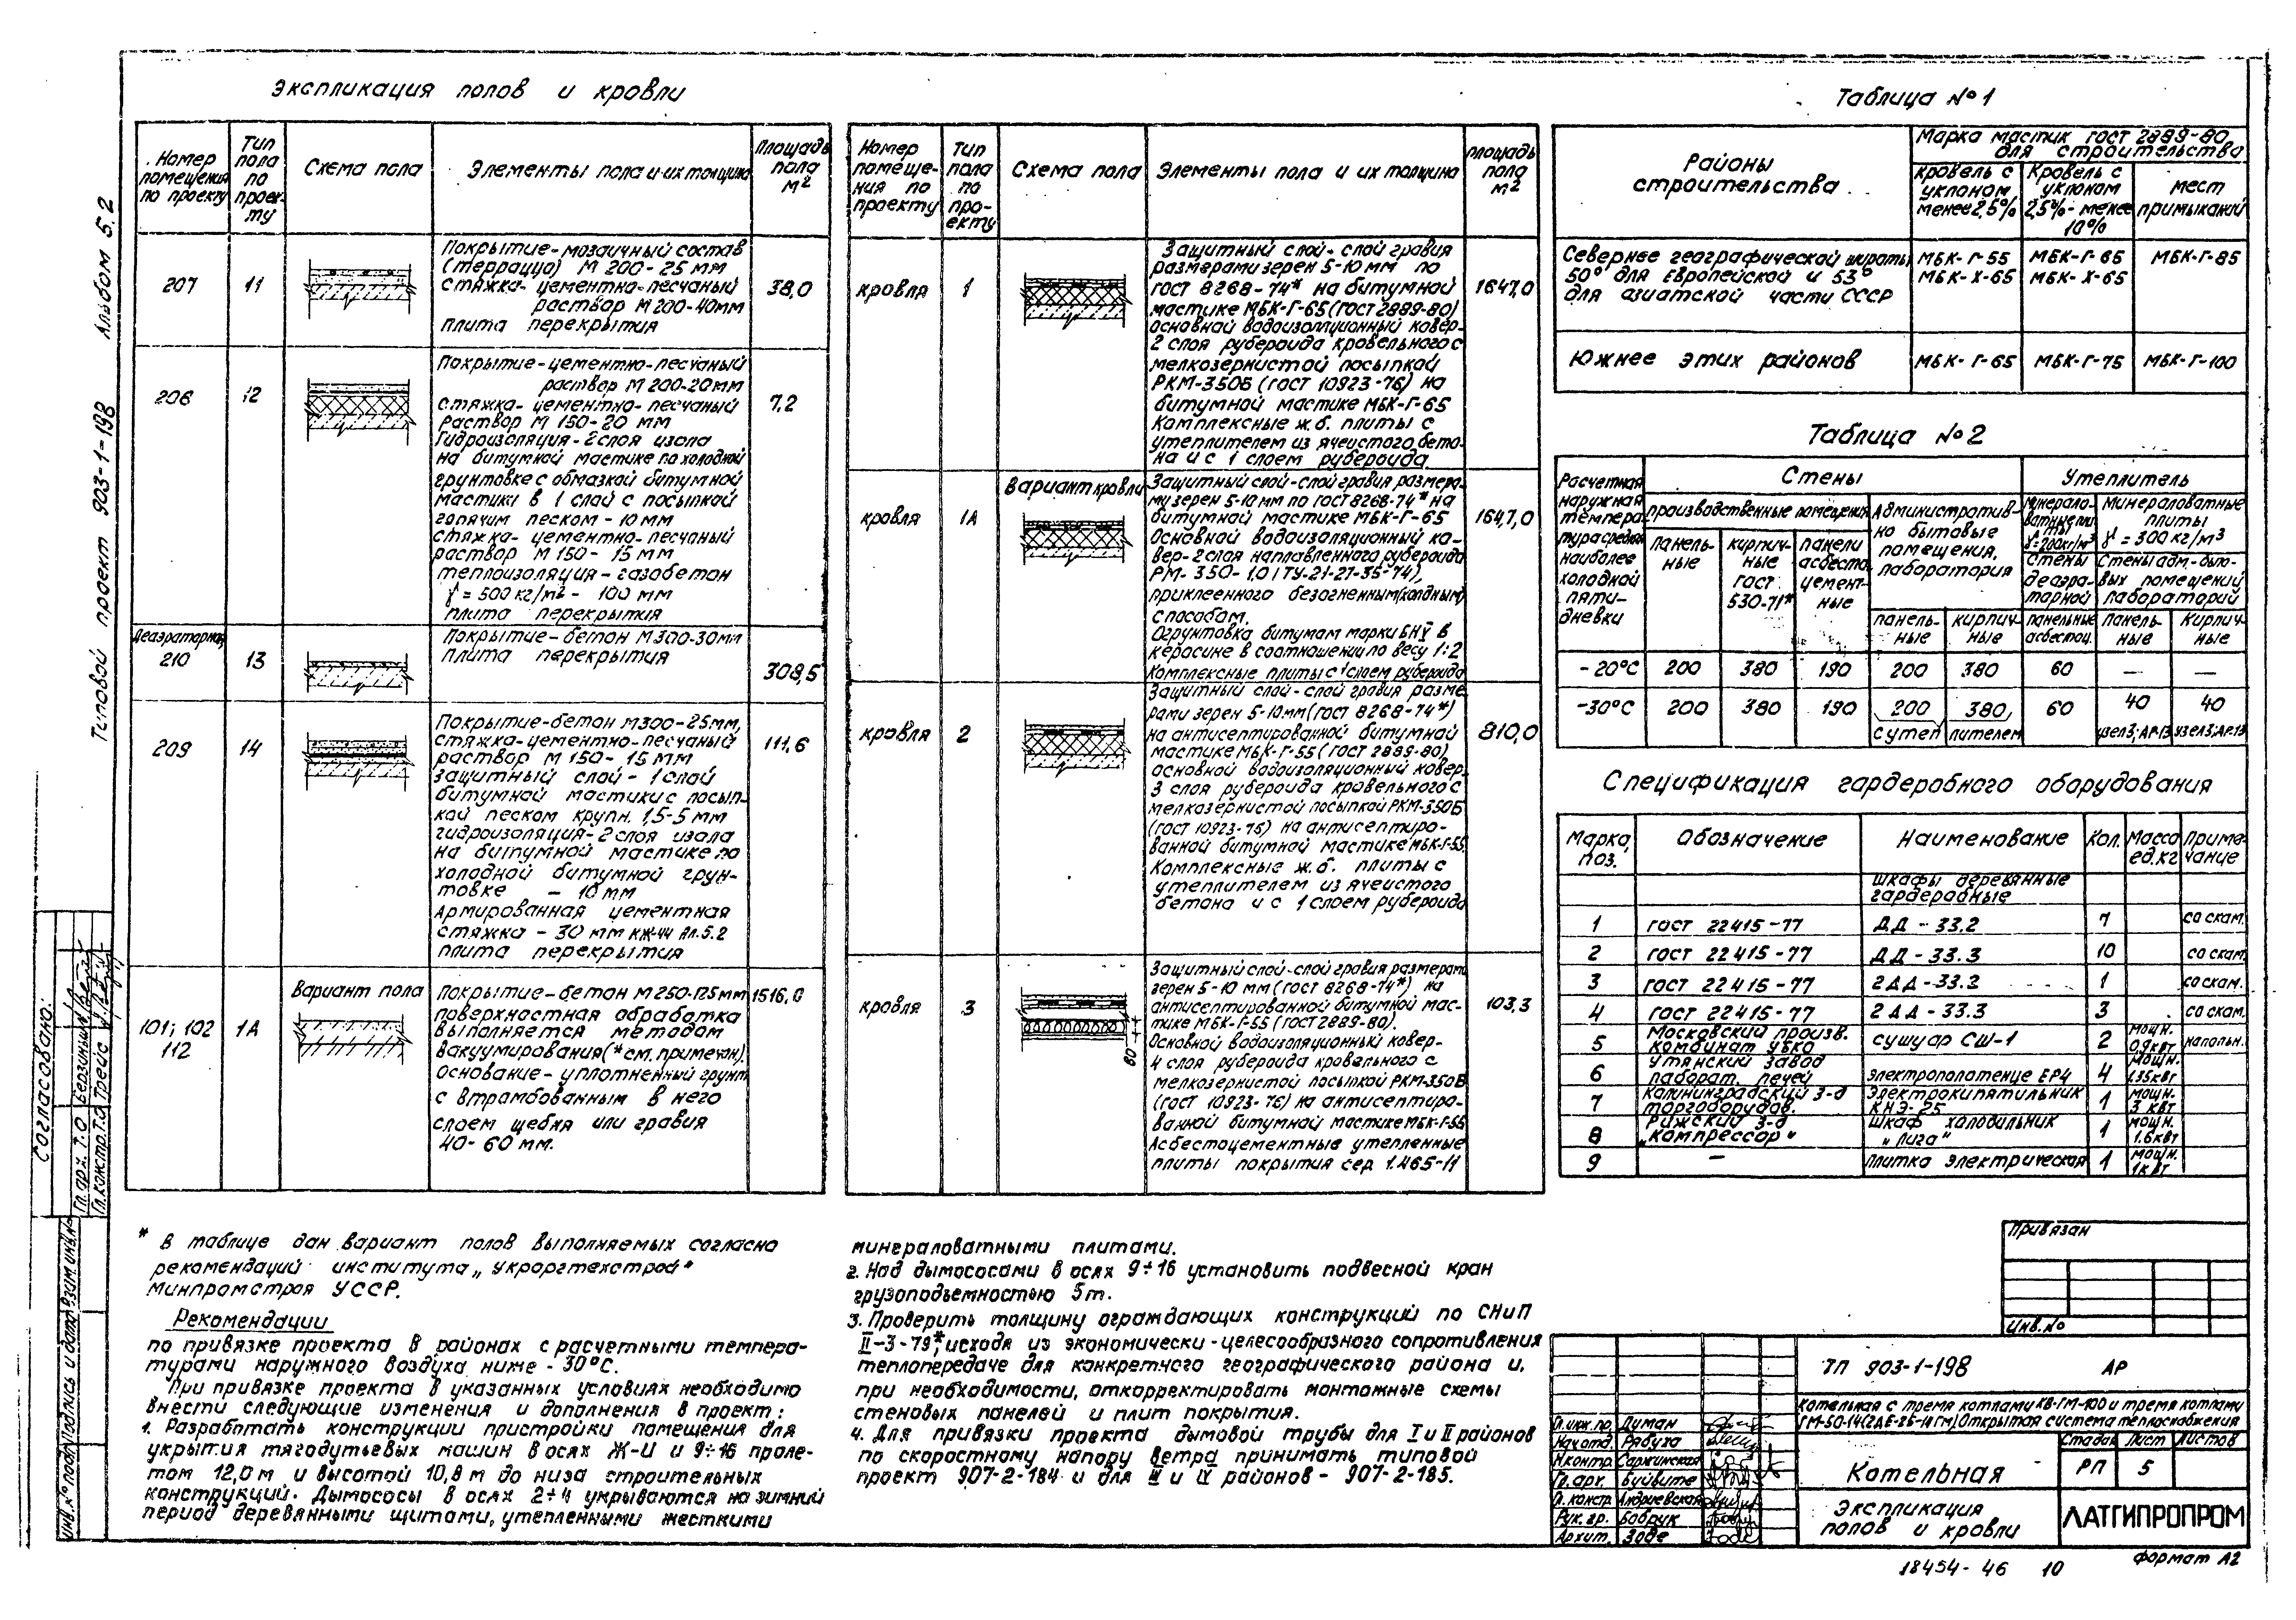 Экспликация полов и кровли
Номер помещения по проекту
Тип пола по проекту
Схема пола
Элементы пола и их толщина
Площадь пола м²
207
11
Покрытие-мозаичный состав
(терраццо) М 200-25 мм
стяжка-цементно-песчаный
раствор М 200-40мм
плита перекрытия
38,0
206
12
Покрытие-цементно-песчаный
раствор М 200-20мм
стяжка-цементно-песчаный
раствор М 150-20 мм
Гидроизоляция-2слоя изола
на битумной мастике по холодной
грунтовке с обмазкой битумной
мастики в 1 слой с посыпкой
горячим песком-10мм
стяжка-цементно-песчаный
раствор М 150-15 мм
теплоизоляция-газобетон
γ=500 кг/м²- 100 мм
плита перекрытия
7,2
Деаэраторная
210
13
Покрытие-бетон М300-30мм
плита перекрытия
308,5
209
14
Покрытие-бетон М300-25мм,
стяжка-цементно-песчаный
раствор М 150-15мм
защитный слой-1слой
битумной мастики с посып-
кой песком крупн. 1,5-5 мм
гидроизоляция-2слоя изола
на битумной мастике по
холодной битумной грун-
товке - 10мм
Армированная цементная
стяжка-30 мм КЖ-44 Ал.5.2
плита перекрытия
111,6
101; 102
112
1А
Вариант пола
Покрытие-бетон М250-125мм
поверхностная обработка
выполняется методом
вакуумирования(*см.примечан).
основание-уплотненный грунт
с втрамбованным в него
слоем щебня или гравия
40-60 мм.
1516,0
Номер помеще-ния по проекту
Тип пола по про-екту
Схема пола
Элементы пола и их толщина
площадь пола м²
кровля
1
Защитный слой-слой гравия
размерами зерен 5-10мм по
гост 8268-74* на битумной
мастике МБК-Г-65(ГОСТ 2889-80)
основной водоизоляционный ковер-
2 слоя рубероида кровельного с
мелкозернистой посыпкой
РКМ-350Б (гост 10923-76) на
битумной мастике МБК-Г-65
Комплексные ж.б. плиты с
утеплителем из ячеистого бето-
на и с 1 слоем рубероида.
1647,0
кровля
1А
Вариант кровли
Защитный слой-слой гравия размера-
ми зерен 5-10мм по гост 8268-74* на
битумной мастике МБК-Г-65
Основной водоизоляционный ко-
вер-2слоя наплавленного рубероида
РМ-350-1.0(ТУ-21-27-35-74),
приклеенного безогневым(холодным)
способом.
Огрунтовка битумам марки БН V в
керасине в соотношении по весу 1:2
Комплексные плиты с 1слоем рубероида
1647,0
кровля
2
Защитный слой-слой гравия разме-
рами зерен 5-10мм(гост 8268-74*)
на антисептированной битумной
мастике МБК-Г-55 (гост 2889-80),
основной водоизоляционный ковер-
3 слоя рубероида кровельного с
мелкозернистой посыпкой РКМ-350Б
(гост 10923-76) на антисептиро-
ванной битумной мастике МБК-Г-55.
Комплексные ж.б. плиты с
утеплителем из ячеистого
бетона и с 1 слоем рубероида
810,0
кровля
3
80
Защитный слой-слой гравия размерами
зерен 5-10 мм (гост 8268-74*) на
антисептированной битумной мас-
тике МБК-Г-55 (гост 2889-80).
Основной водоизоляционный ковер-
4 слоя рубероида кровельного с
мелкозернистой посыпкой РКМ-350В
(гост 10923-76) на антисептиро-
ванной битумной мастике МБК-Г-55
Асбестоцементные утепленные
плиты покрытия сер 1.465-11
103,3
Таблица №1
Районы строительства
Марка мастик гост 2889-80
для строительства
кровель с уклоном менее 2,5%
Кровель с уклоном 2,5%-менее 10%
мест примыканий
Севернее географической широты
50° для европейской и 53°
для азиатской части СССР
МБК-Г-55 МБК-Г-65 МБК-Г-85
МБК-Х-65 МБК-Х-65
Южнее этих районов МБК-Г-65 МБК-Г-75 МБК-Г-100
Таблица №2
Расчетная наружная темпера-тура средняя наиболее холодной пяти-дневки
Стены
Утеплитель
производственные помещения
Административ-но бытовые помещения, лаборатория
Минерало-ватные пли-ты γ=200кг/м³
Минераловатные плиты γ=300 кг/м³
панель-ные
кирпич-ные гост 530-71*
панели асбесто цемент-ные
Стены деаэра-торной
Стены адм.-быто-вых помещений лабораторий
панель-ные
кирпич-ные
панельные асбестоц.
Панель-ные
Кирпич-ные
-20°С 200 380 190 200 380 60 — —
-30°С 200 380 190 200 380 60 40 40
с утеплителем
узел 3; АР-13 узел 3; АР-13
Спецификация гардеробного оборудования
Марка, поз. Обозначение Наименование Кол. Масса ед.кг Приме-чание
шкафы деревянные
гардеробные
1 гост 22415-77 ДД-33.2 7 со скам.
2 гост 22415-77 ДД-33.3 10 со скам.
3 гост 22415-77 2ДД-33.2 1 со скам.
4 гост 22415-77 2ДД-33.3 3 со скам.
5 Московский произв. комбинат УБКО сушуар СШ-1 2 мощн. 0,9квт напольн.
6 Утянский завод лаборат. печей электрополотенце ЕР4 4 мощн. 1.35квт
7 Калининградский з-д торгоборудов. Электрокипятильник КНЭ-25 1 мощн. 3 квт
8 Рижский з-д „Компрессор" шкаф холодильник „Лига" 1 мощн. 1.6квт
9 — плитка электрическая 1 мощн. 1квт
* в таблице дан вариант полов выполняемых согласно
рекомендаций института „Укроргтехстрой"
Минпромстроя УССР.
Рекомендации
по привязке проекта в районах с расчетными темпера-
турами наружного воздуха ниже -30°С.
При привязке проекта в указанных условиях необходимо
внести следующие изменения и дополнения в проект:
1. Разработать конструкции пристройки помещения для
укрытия тягодутьевых машин в осях Ж-И и 9÷16 проле-
том 12,0м и высотой 10,8м до низа строительных
конструкций. Дымососы в осях 2÷4 укрываются на зимний
период деревянными щитами, утепленными жесткими
минераловатными плитами.
2. Над дымососами в осях 9÷16 установить подвесной кран
грузоподъемностью 5т.
3. Проверить толщину ограждающих конструкций по СНиП
II-3-79*, исходя из экономически-целесообразного сопротивления
теплопередаче для конкретного географического района и,
при необходимости, откорректировать монтажные схемы
стеновых панелей и плит покрытия.
4. Для привязки проекта дымовой трубы для I и II районов
по скоростному напору ветра принимать типовой
проект 907-2-184 и для III и IV районов - 907-2-185.
Привязан
Инв.№
ТП 903-1-198 АР
Котельная с тремя котлами КВ-ГМ-100 и тремя котлами
ГМ-50-14(2ДЕ-25-14ГМ) Открытая система теплоснабжения
Гл.инж.пр. Думан
Нач.отд. Рябуха
Н.контр. Саржинская
Гл.арх. Буйвите
Гл.констр. Андриевская
Рук.гр. Бобрук
Архит. Зоде
Котельная
Стадия Лист Листов
РП 5
Экспликация
полов и кровли
ЛАТГИПРОПРОМ
18454-46 10
формат А2
Типовой проект 903-1-198 Альбом 5.2
Согласовано:
Гл.арх. Т.О
Гл.констр.Т.О Трейс
Инв.№ подл. Подпись и дата Взам.инв.№